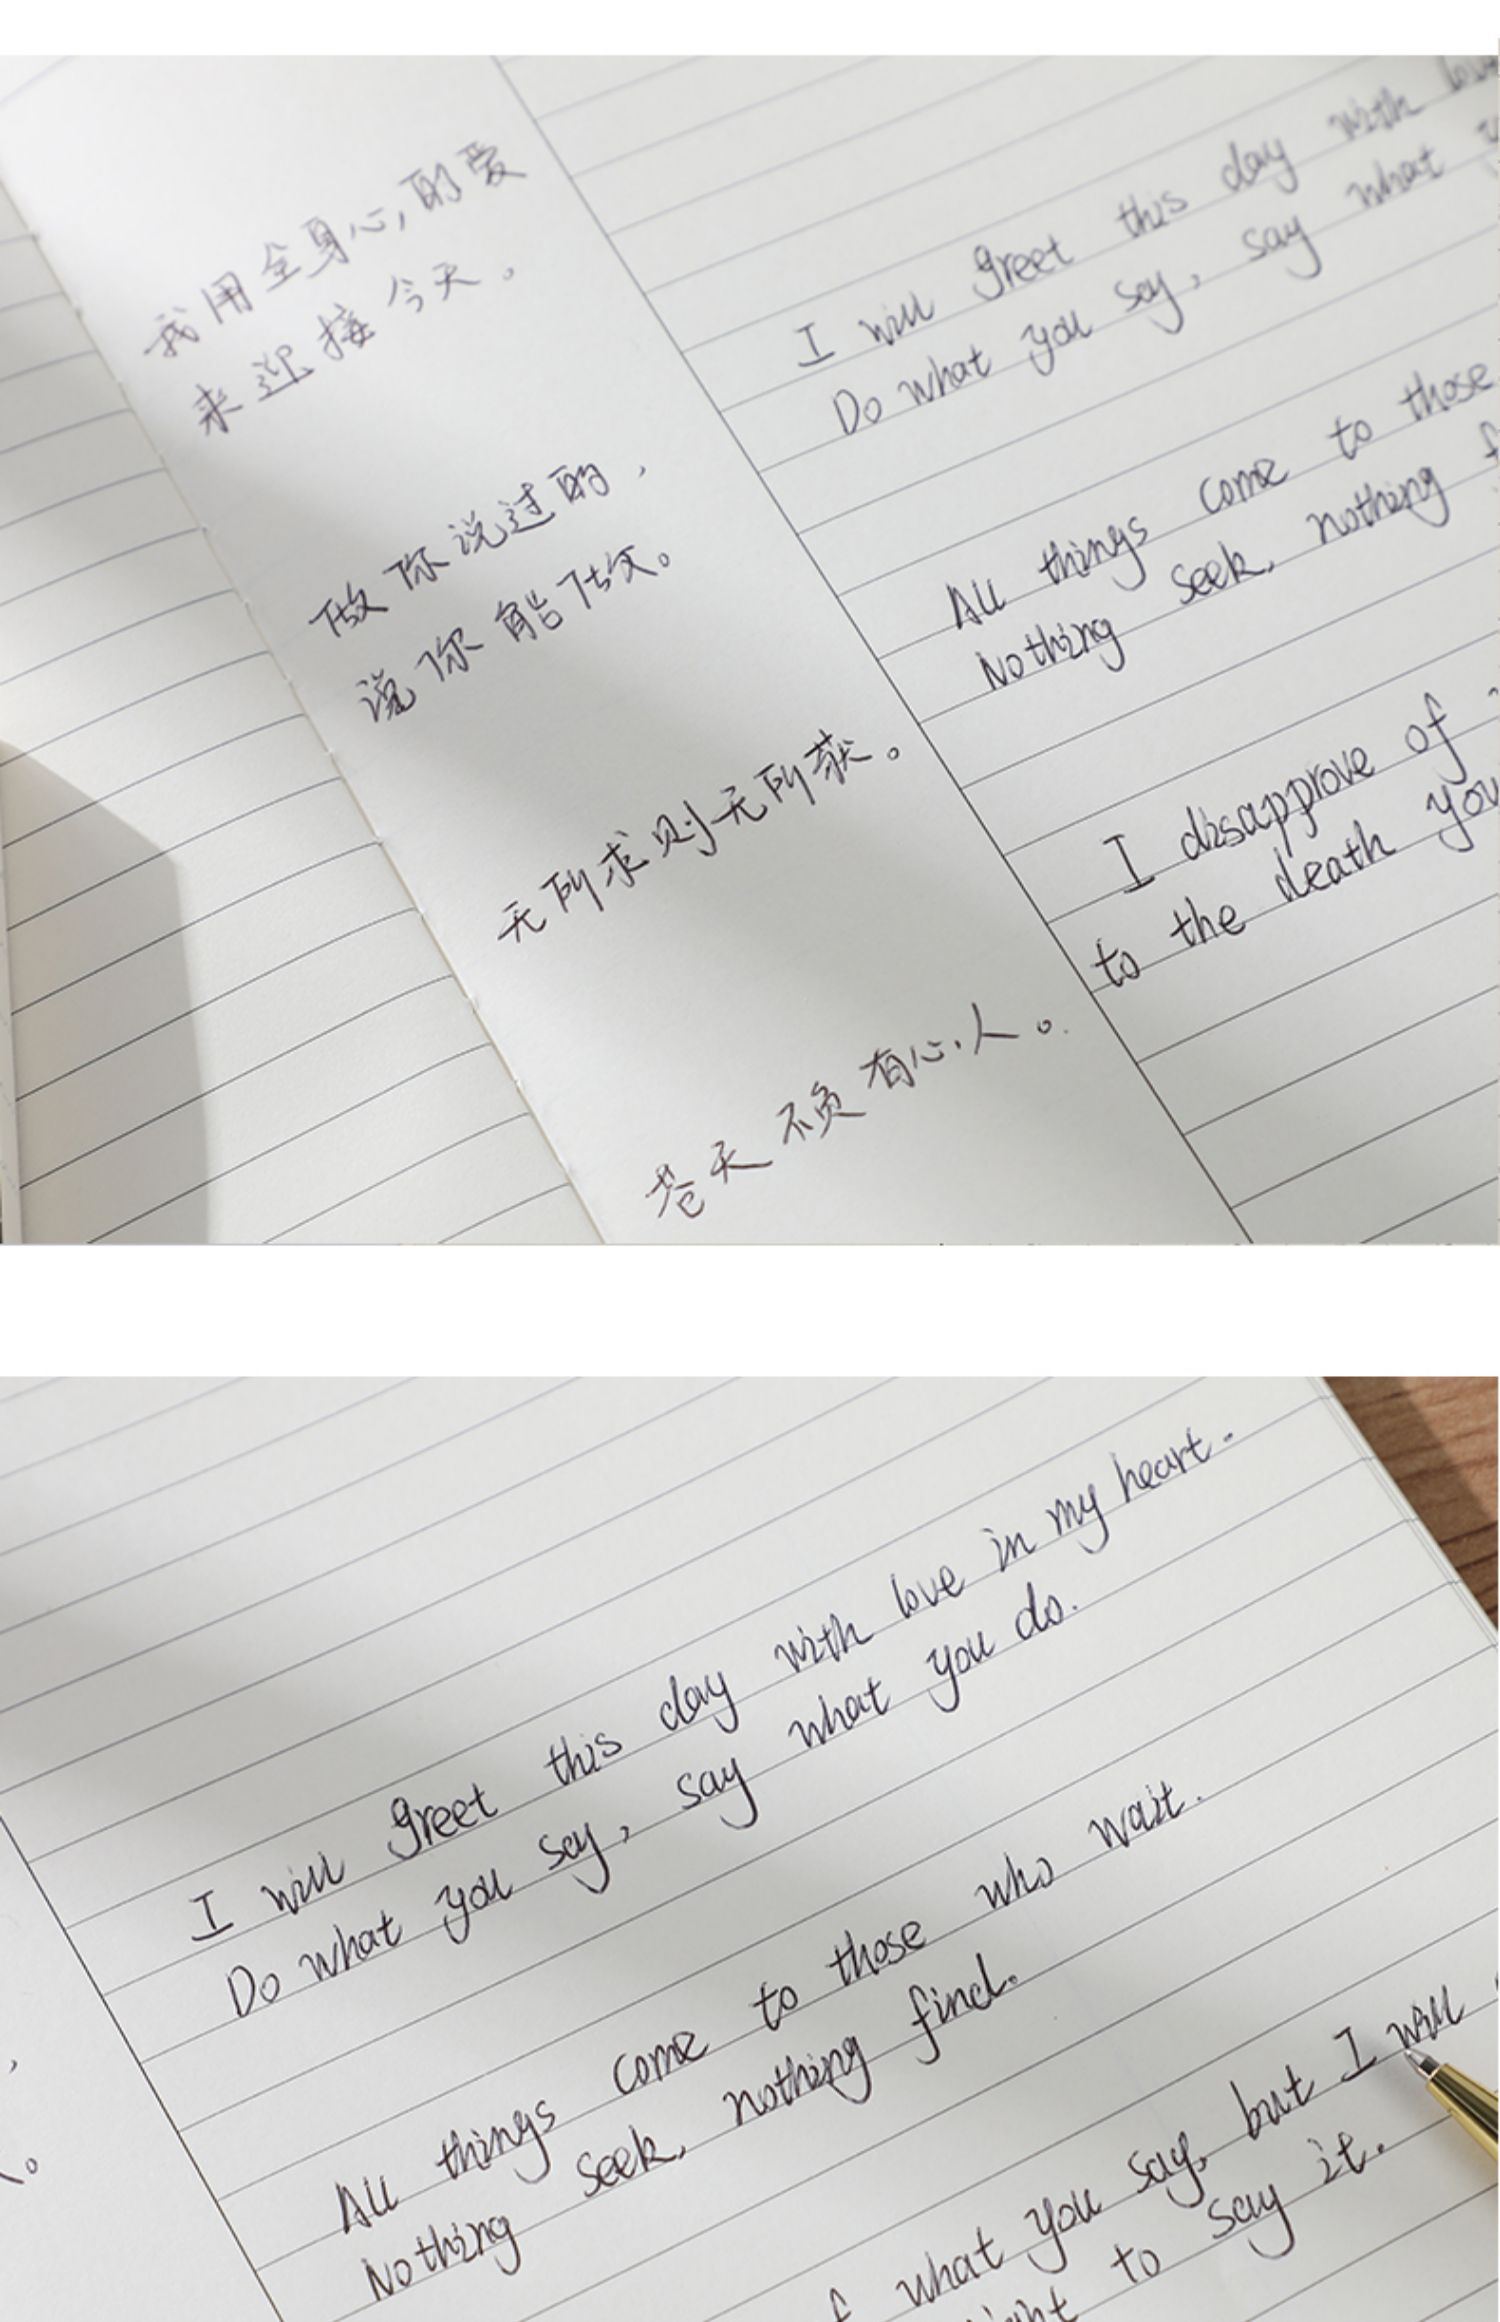 我用全身心的爱
来迎接今天。
做你说过的，
说你能做。
无所求则无所获。
苍天不负有心人。
I will greet this day with love
Do what you say, say what
All things come to those
Nothing seek, nothing f
I disapprove of
to the death you
I will greet this day with love in my heart.
Do what you say, say what you do.
All things come to those who wait.
Nothing seek, nothing find.
f what you say, but I will
right to say it.